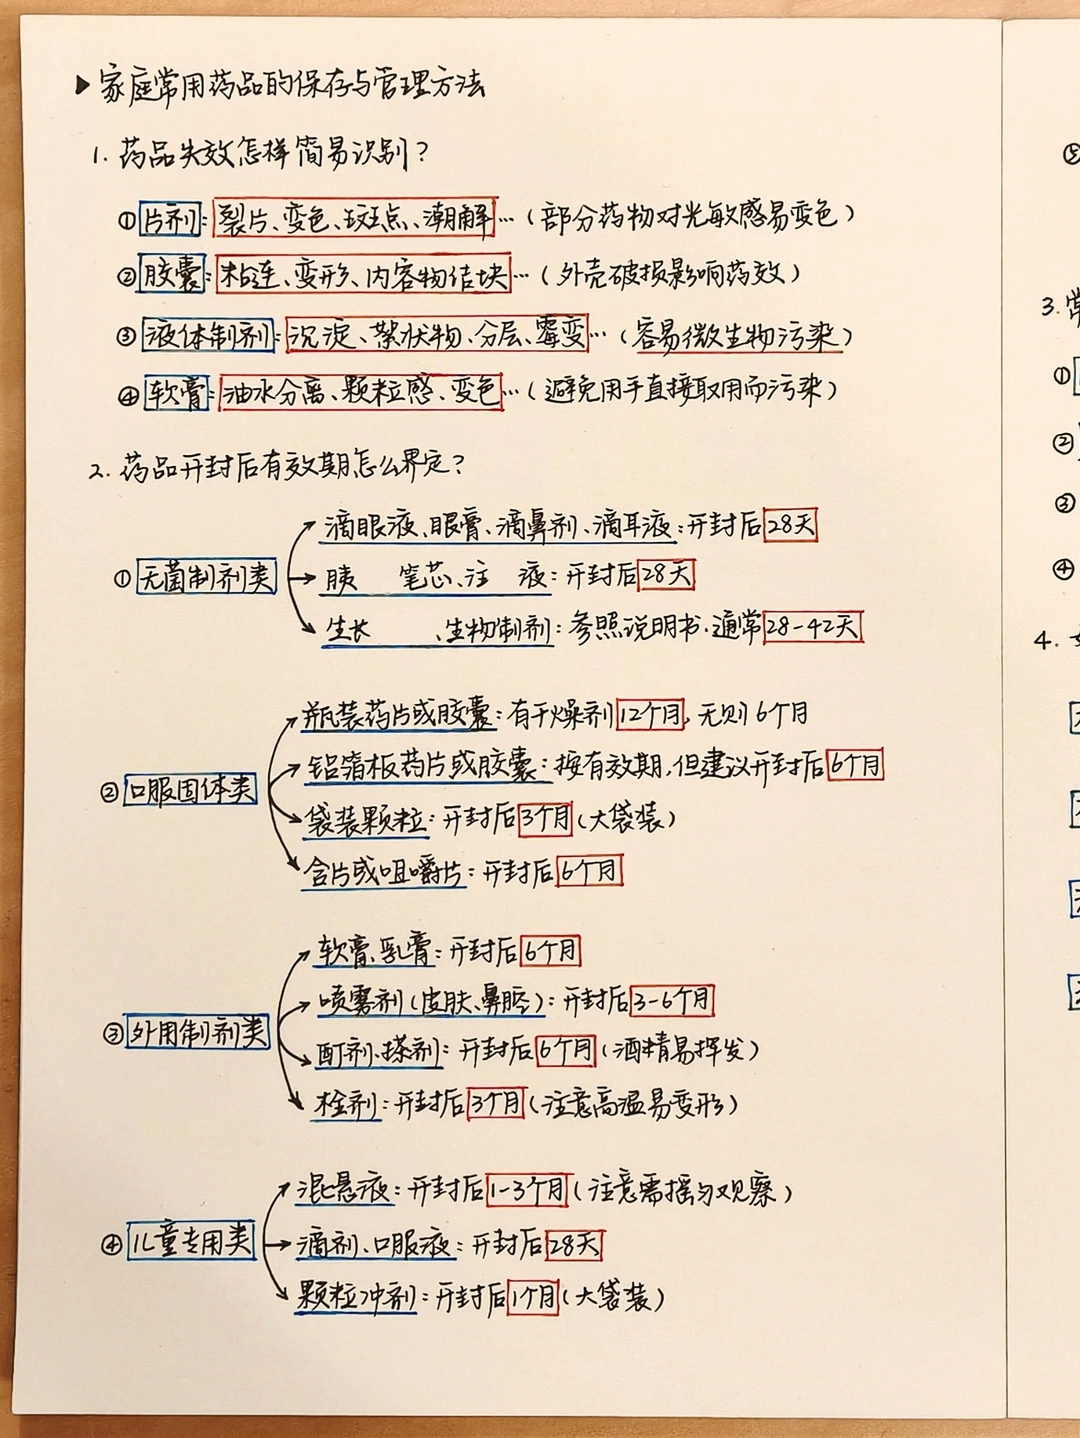 ▶家庭常用药品的保存与管理方法
1. 药品失效怎样简易识别？
①片剂：裂片、变色、斑点、潮解…（部分药物对光敏感易变色）
②胶囊：粘连、变形、内容物结块…（外壳破损影响药效）
③液体制剂：沉淀、絮状物、分层、霉变…（容易微生物污染）
④软膏：油水分离、颗粒感、变色…（避免用手直接取用而污染）
2. 药品开封后有效期怎么界定？
①无菌制剂类
滴眼液、眼膏、滴鼻剂、滴耳液：开封后28天
胰 笔芯、注 液：开封后28天
生长 、生物制剂：参照说明书.通常28-42天
②口服固体类
瓶装药片或胶囊：有干燥剂12个月，无则6个月
铝箔板药片或胶囊：按有效期，但建议开封后6个月
袋装颗粒：开封后3个月（大袋装）
含片或咀嚼片：开封后6个月
③外用制剂类
软膏、乳膏：开封后6个月
喷雾剂（皮肤、鼻腔）：开封后3-6个月
酊剂、搽剂：开封后6个月（酒精易挥发）
栓剂：开封后3个月（注意高温易变形）
④儿童专用类
混悬液：开封后1-3个月（注意需摇匀观察）
滴剂、口服液：开封后28天
颗粒冲剂：开封后1个月（大袋装）
⑤
3. 常
①
②
③
④
4.